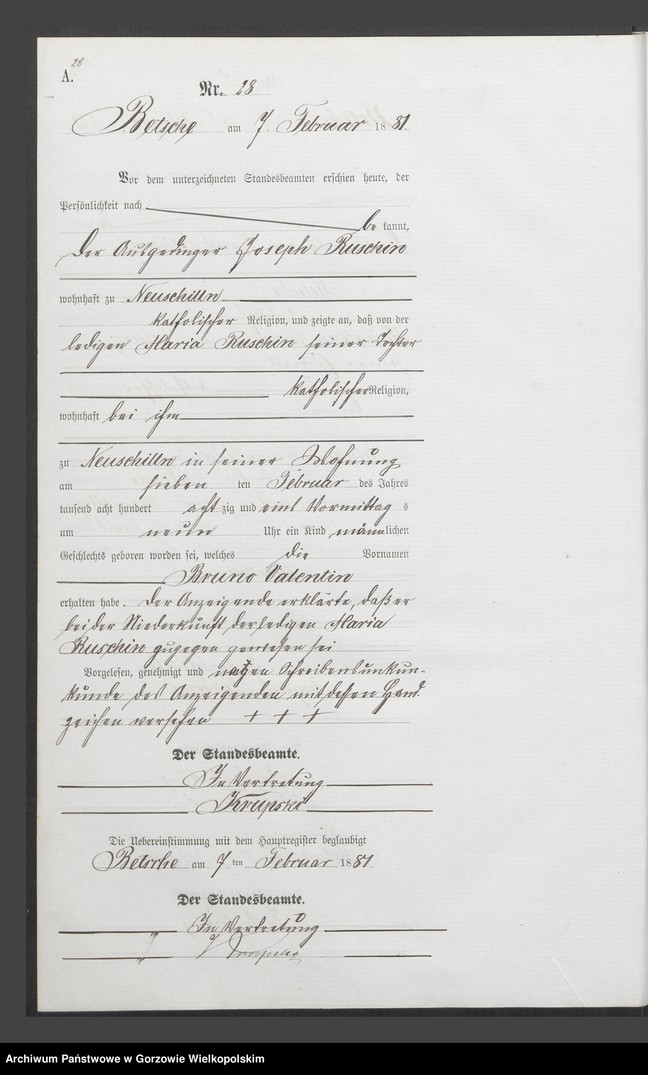 28
A.
Nr. 28
Betsche am 7. Februar 1881.
Vor dem unterzeichneten Standesbeamten erschien heute, der
Persönlichkeit nach
be kannt,
der Ausgedinger Joseph Ruschin
wohnhaft zu Neuschilln
katholischer Religion, und zeigte an, daß von der
ledigen Maria Ruschin seiner Tochter
katholischer Religion,
wohnhaft bei ihm
zu Neuschilln in seiner Wohnung
am sieben ten Februar des Jahres
tausend acht hundert acht zig und eins Vormittag s
um neun Uhr ein Kind männlichen
Geschlechts geboren worden sei, welches die Vornamen
Bruno Valentin
erhalten habe. Der Anzeigende erklärte, daß er
bei der Niederkunft der ledigen Maria
Ruschin zugegen gewesen sei
Vorgelesen, genehmigt und wegen Schreibensunkun-
kunde des Anzeigenden mit dessen Hand
zeichen versehen + + +
Der Standesbeamte.
In Vertretung
Krupski
Die Uebereinstimmung mit dem Hauptregister beglaubigt
Betsche am 7 ten Februar 1881
Der Standesbeamte.
In Vertretung
Krupski
Archiwum Państwowe w Gorzowie Wielkopolskim